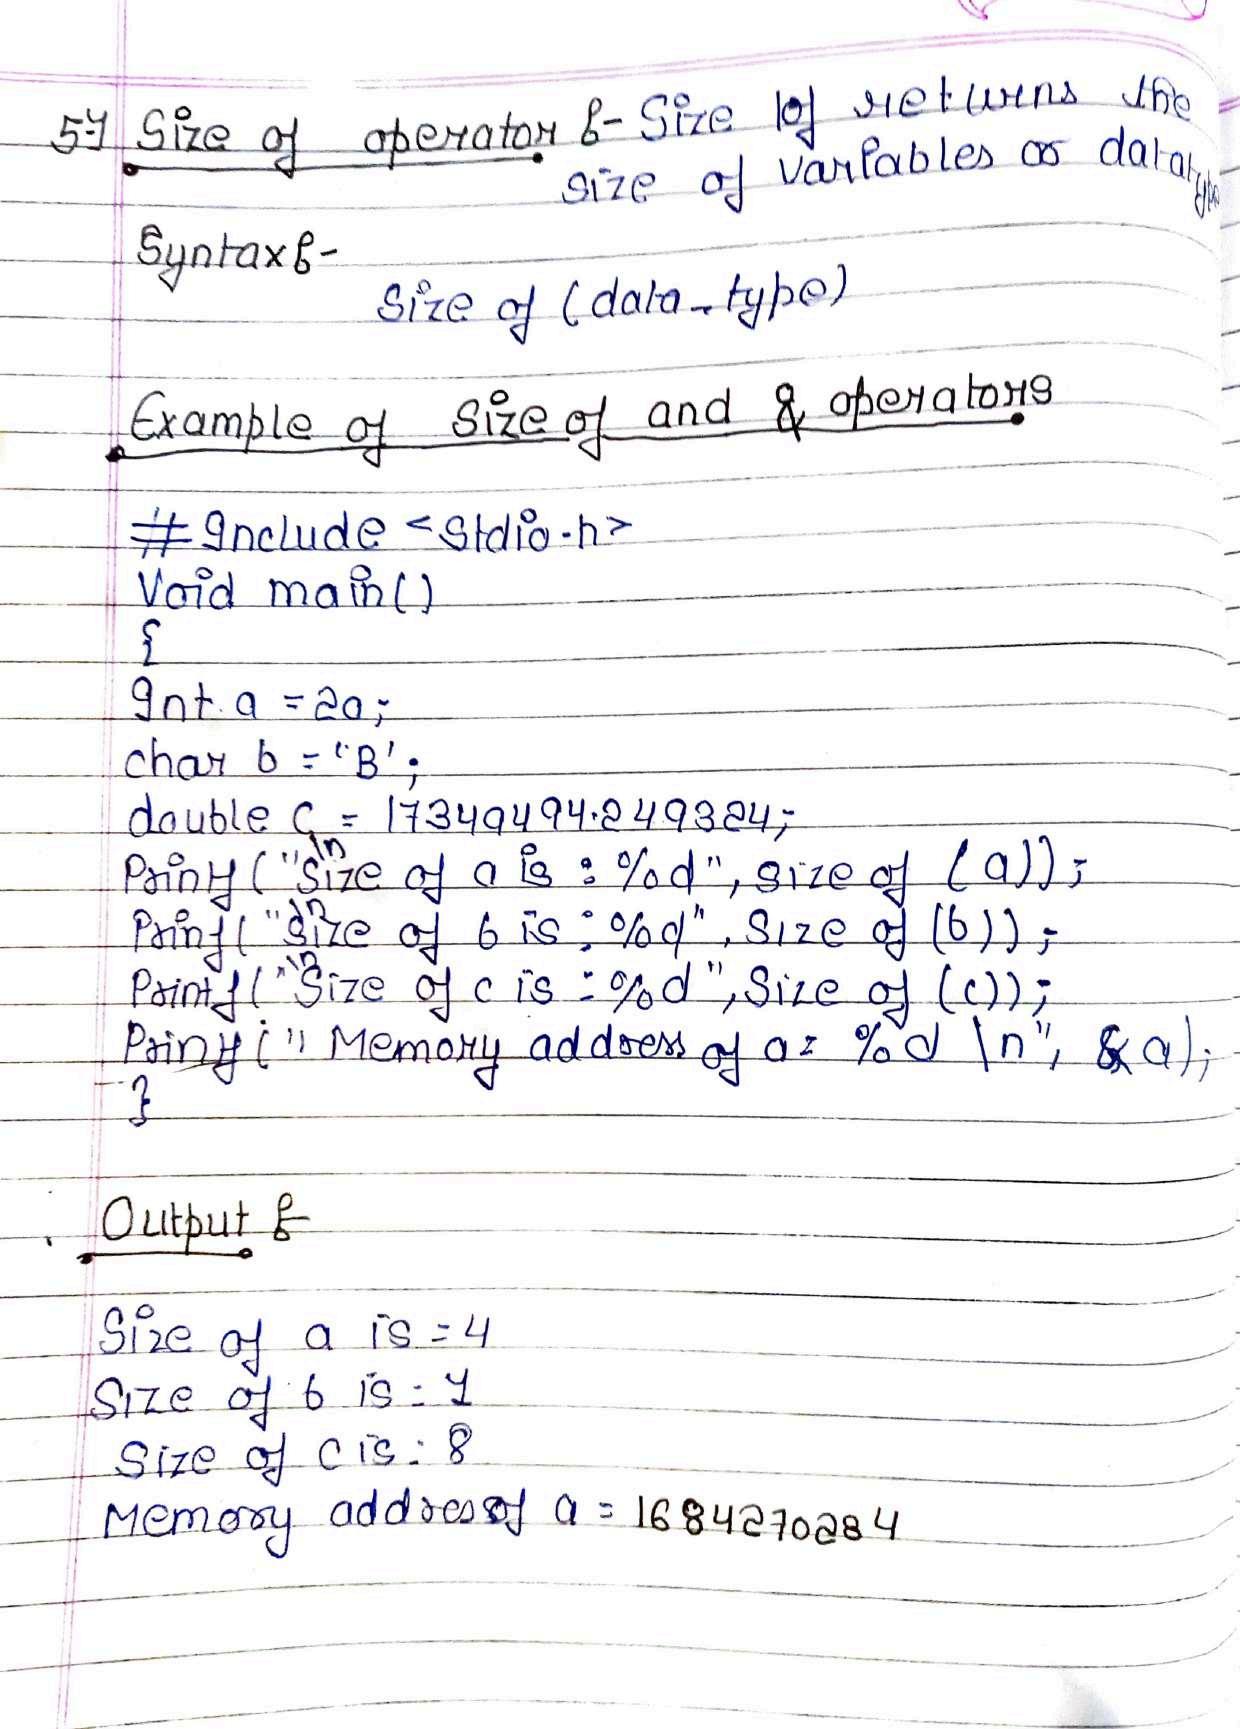 5-) Size of operator :- Size of returns the
size of variables or datatype
Syntax :-
Size of (data-type)
Example of Size of and & operators
# Include <Stdio.h>
Void main()
{
Int a = 20;
char b = 'B';
double c = 17349494.249324;
Printf("\nSize of a is : %d", size of (a));
Printf("\nSize of b is : %d", Size of (b));
Printf("\nSize of c is : %d", Size of (c));
Printf(" Memory address of a = %d \n", &a);
}
Output :-
Size of a is = 4
Size of b is : 1
Size of c is : 8
Memory address of a = 1684270284